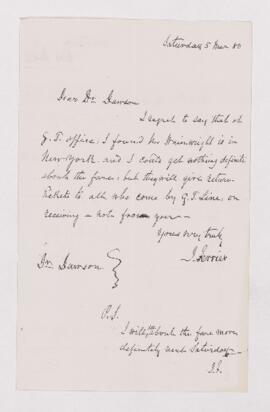 Saturday 5 Mar 80
Dear Dr. Dawson
I regret to say that at
G. T. office, I found Mr Wainwright is in
New York. and I could get nothing definite
about the fares; but they will give return
tickets to all who come by G. T. Line, on
receiving a note from you—
Yours very truly
J. Ferrier
Dr. Dawson
P.S.
I will about the fare more
definitely next Saturday—
J.F.